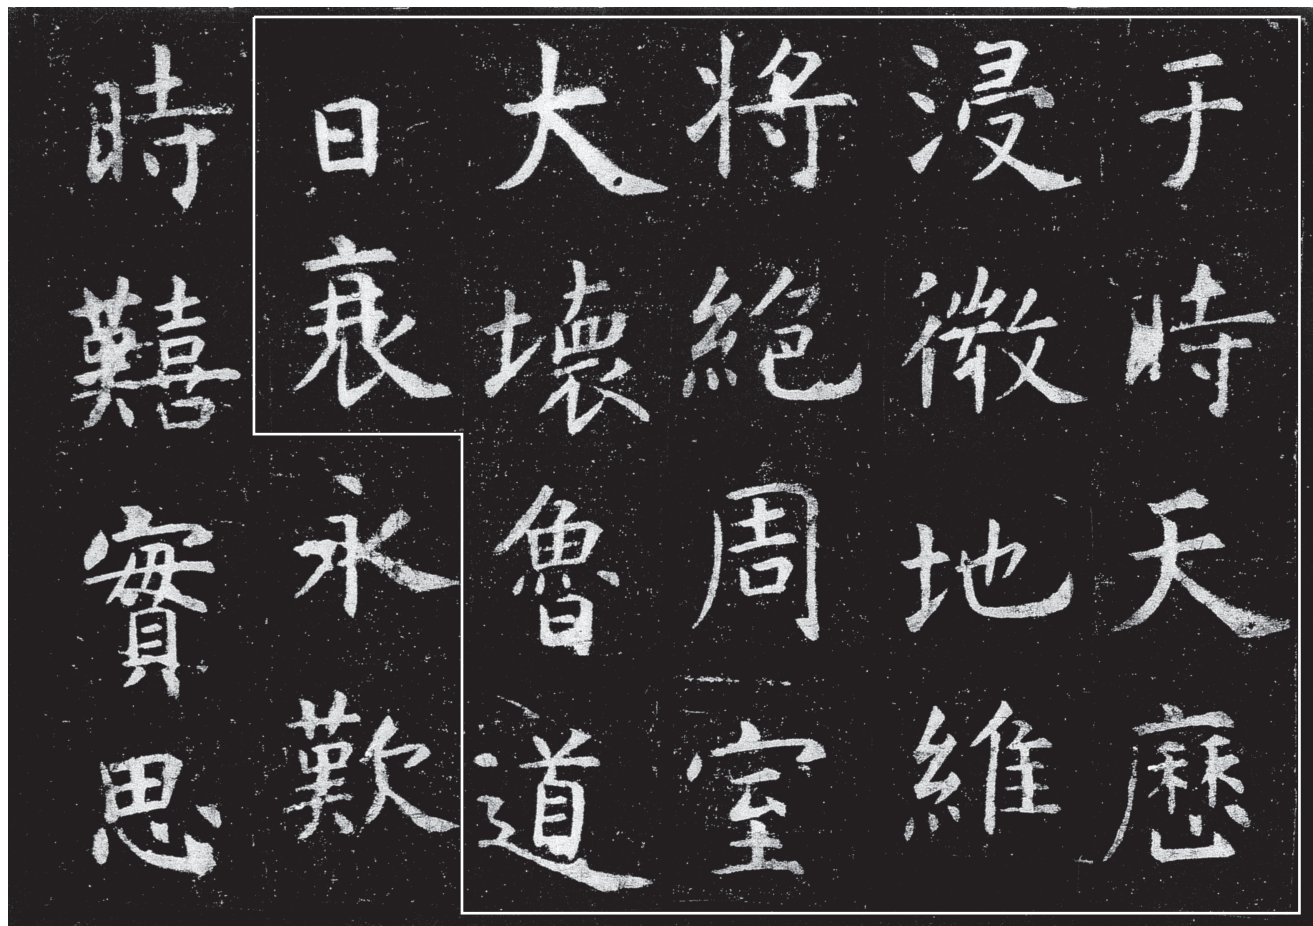 于時天歷
浸微地維
將絕周室
大壞魯道
日衰永歎
時囏實思